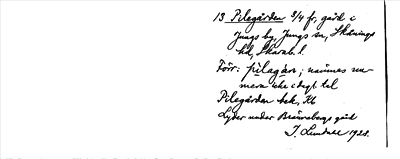 13 Pilegården 3/4 fr, gård i
Jungs by, Jungs sn, Skånings
hd, Skarab. l.
Förr: pilagårn; naumes nu-
mera icke i dagl. tal
Pilegården bek, Kb
Lyder under Bränneberg gård
I. Lundahl 1928.